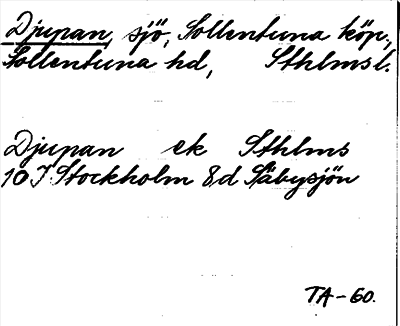 Djupan, sjö, Sollentuna köp.,
Sollentuna hd, Sthlms l.
Djupan ek Sthlms
10 I Stockholm 8d Säbysjön
TA-60.